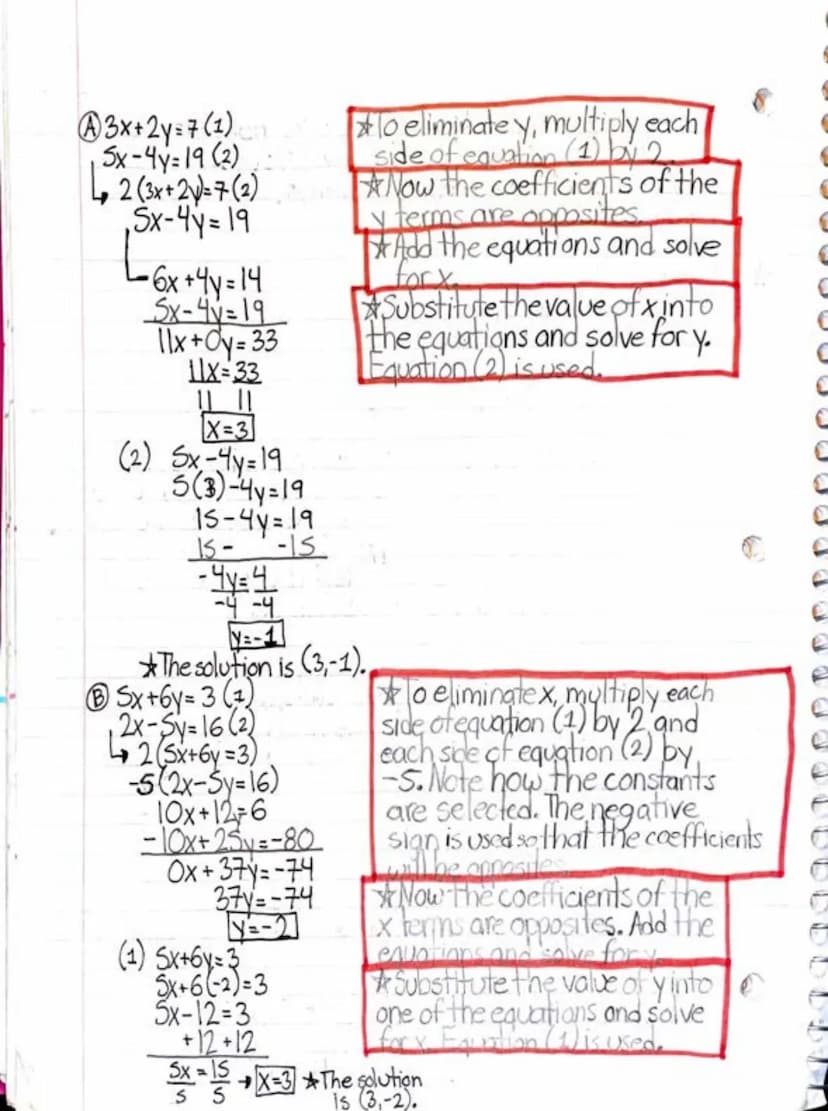 Ⓐ 3x+2y=7 (1)
5x-4y=19 (2)
↳ 2(3x+2y)=7(2)
5x-4y=19
6x+4y=14
5x-4y=19
11x+0y=33
11x=33
11 11
x=3
(2) 5x-4y=19
5(3)-4y=19
15-4y=19
15- -15
-4y=4
-4 -4
y=-1
★The solution is (3,-1).
★To eliminate y, multiply each
side of equation (1) by 2.
★Now the coefficients of the
y terms are opposites.
★Add the equations and solve
for x.
★Substitute the value of x into
the equations and solve for y.
Equation (2) is used.
Ⓑ 5x+6y=3 (1)
2x-5y=16 (2)
↳ 2(5x+6y=3)
-5(2x-5y=16)
10x+12y=6
-10x+25y=-80
0x+37y=-74
37y=-74
y=-2
(1) 5x+6y=3
5x+6(-2)=3
5x-12=3
+12 +12
5x = 15 → x=3 ★The solution
5 5 is (3,-2).
★To eliminate x, multiply each
side of equation (1) by 2 and
each side of equation (2) by
-5. Note how the constants
are selected. The negative
sign is used so that the coefficients
will be opposites.
★Now the coefficients of the
x terms are opposites. Add the
equations and solve for y.
★Substitute the value of y into
one of the equations and solve
for x. Equation (1) is used.